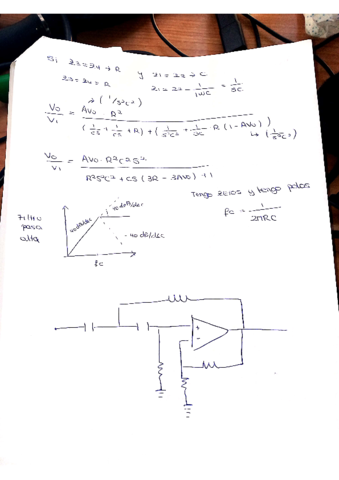 Si Z3=Z4 → R y Z1=Z2 → C
Z3=Z4=R Z1=Z2= 1/jωC = 1/SC
Vo/Vi = Avo R² / ((1/CS + 1/CS + R) + (1/S²C² + 1/SC · R (1-Avo)))
Vo/Vi = Avo · R²C²S² / R²S²C² + CS (3R - 3Avo) + 1
Tengo zeros y tengo polos
fc = 1/2πRC
Filtro
paso
alta
40dB/dec
-40 dB/dec
fc
+
-